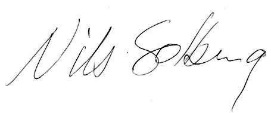 Nils Solberg